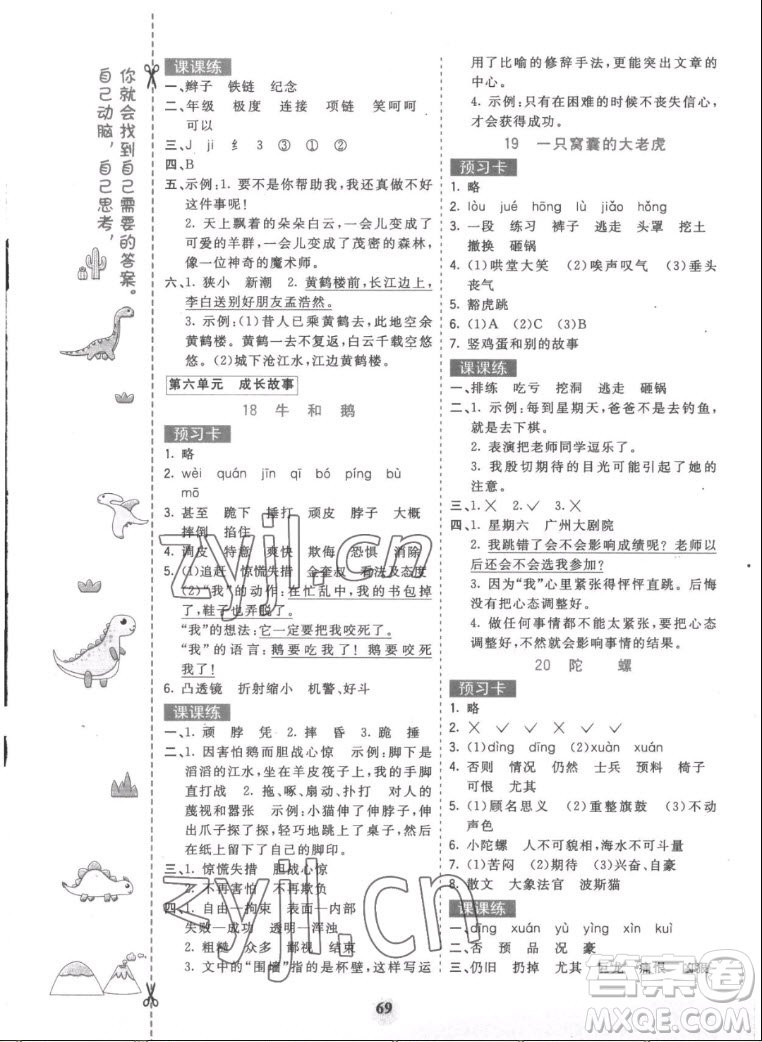 你就会找到自己需要的答案。
自己动脑，自己思考，
课课练
一、辫子 铁链 纪念
二、年级 极度 连接 项链 笑呵呵
可以
三、J ji 纟 3 ③①②①
四、B
五、示例：1. 要不是你帮助我，我还做不好
这件事呢！
2. 天上飘着的朵朵白云，一会儿变成了
可爱的羊群，一会儿变成了茂密的森林，
像一位神奇的魔术师。
六、1. 狭小 新潮 2. 黄鹤楼前，长江边上，
李白送别好朋友孟浩然。
3. 示例：(1)昔人已乘黄鹤去，此地空余
黄鹤楼。黄鹤一去不复返，白云千载空悠
悠。(2)城下沧江水，江边黄鹤楼。
第六单元 成长故事
18 牛 和 鹅
预习卡
1. 略
2. wèi quán jīn qī bó píng bù
mō
3. 甚至 跪下 捶打 顽皮 脖子 大概
摔倒 掐住
4. 调皮 特意 爽快 欺侮 恐惧 消除
5. (1)追赶 惊慌失措 金奎叔 看法及态度
(2)“我”的动作：在忙乱中，我的书包掉
了，鞋子也弄脱了。
“我”的想法：它一定要把我咬死了。
“我”的语言：鹅要吃我了！鹅要咬死我
了！
6. 凸透镜 折射缩小 机警、好斗
课课练
一、1. 顽 脖 凭 2. 摔 昏 3. 跪 捶
二、1. 因害怕鹅而胆战心惊 示例：脚下是
滔滔的江水，坐在羊皮筏子上，我的手脚
直打战 2. 拖、啄、扇动、扑打 对人的
蔑视和嚣张 示例：小猫伸了伸脖子，伸
出爪子探了探，轻巧地跳上了桌子，然后
在纸上留下了自己的脚印。
三、1. 惊慌失措 胆战心惊
2. 不再害怕 不再欺负
四、1. 自由—拘束 表面—内部
失败—成功 透明—浑浊
2. 粗糙 众多 鄙视 结束
3. 文中的“围墙”指的是杯壁，这样写运
用了比喻的修辞手法，更能突出文章的
中心。
4. 示例：只有在困难的时候不丧失信心，
才会获得成功。
19 一只窝囊的大老虎
预习卡
1. 略
2. lòu jué hōng lù jiǎo hǎng
3. 一段 练习 裤子 逃走 头罩 挖土
撤换 砸锅
4. (1)哄堂大笑 (2)唉声叹气 (3)垂头
丧气
5. 豁虎跳
6. (1)A (2)C (3)B
7. 竖鸡蛋和别的故事
课课练
一、排练 吃亏 挖洞 逃走 砸锅
二、1. 示例：每到星期天，爸爸不是去钓鱼，
就是去下棋。
2. 表演把老师同学逗乐了。
3. 我殷切期待的目光可能引起了她的
注意。
三、1. ╳ 2. ✓ 3. ╳
四、1. 星期六 广州大剧院
2. 我跳错了会不会影响成绩呢？老师以
后还会不会选我参加？
3. 因为“我”心里紧张得怦怦直跳。后悔
没有把心态调整好。
4. 做任何事情都不要紧张，要把心态调
整好，不然就会影响事情的结果。
20 陀 螺
预习卡
1. 略
2. ╳ ✓ ✓ ╳ ╳
3. (1)dìng dīng (2)xuàn xuán
4. 否则 情况 仍然 士兵 预料 椅子
可恨 尤其
5. (1)顾名思义 (2)重整旗鼓 (3)不动
声色
6. 小陀螺 人不可貌相，海水不可斗量
7. (1)苦闷 (2)期待 (3)兴奋、自豪
8. 散文 大象法官 波斯猫
课课练
一、dīng xuán yù yìng xìn kuì
二、否 预 品 况 豪
三、仍旧 扔掉 尤其 痛恨
69
zyjl.cn
zyjl.cn
答案圈
MXQE.COM